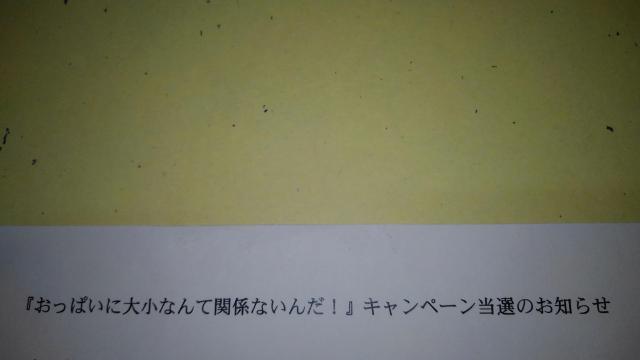 『おっぱいに大小なんて関係ないんだ！』キャンペーン当選のお知らせ